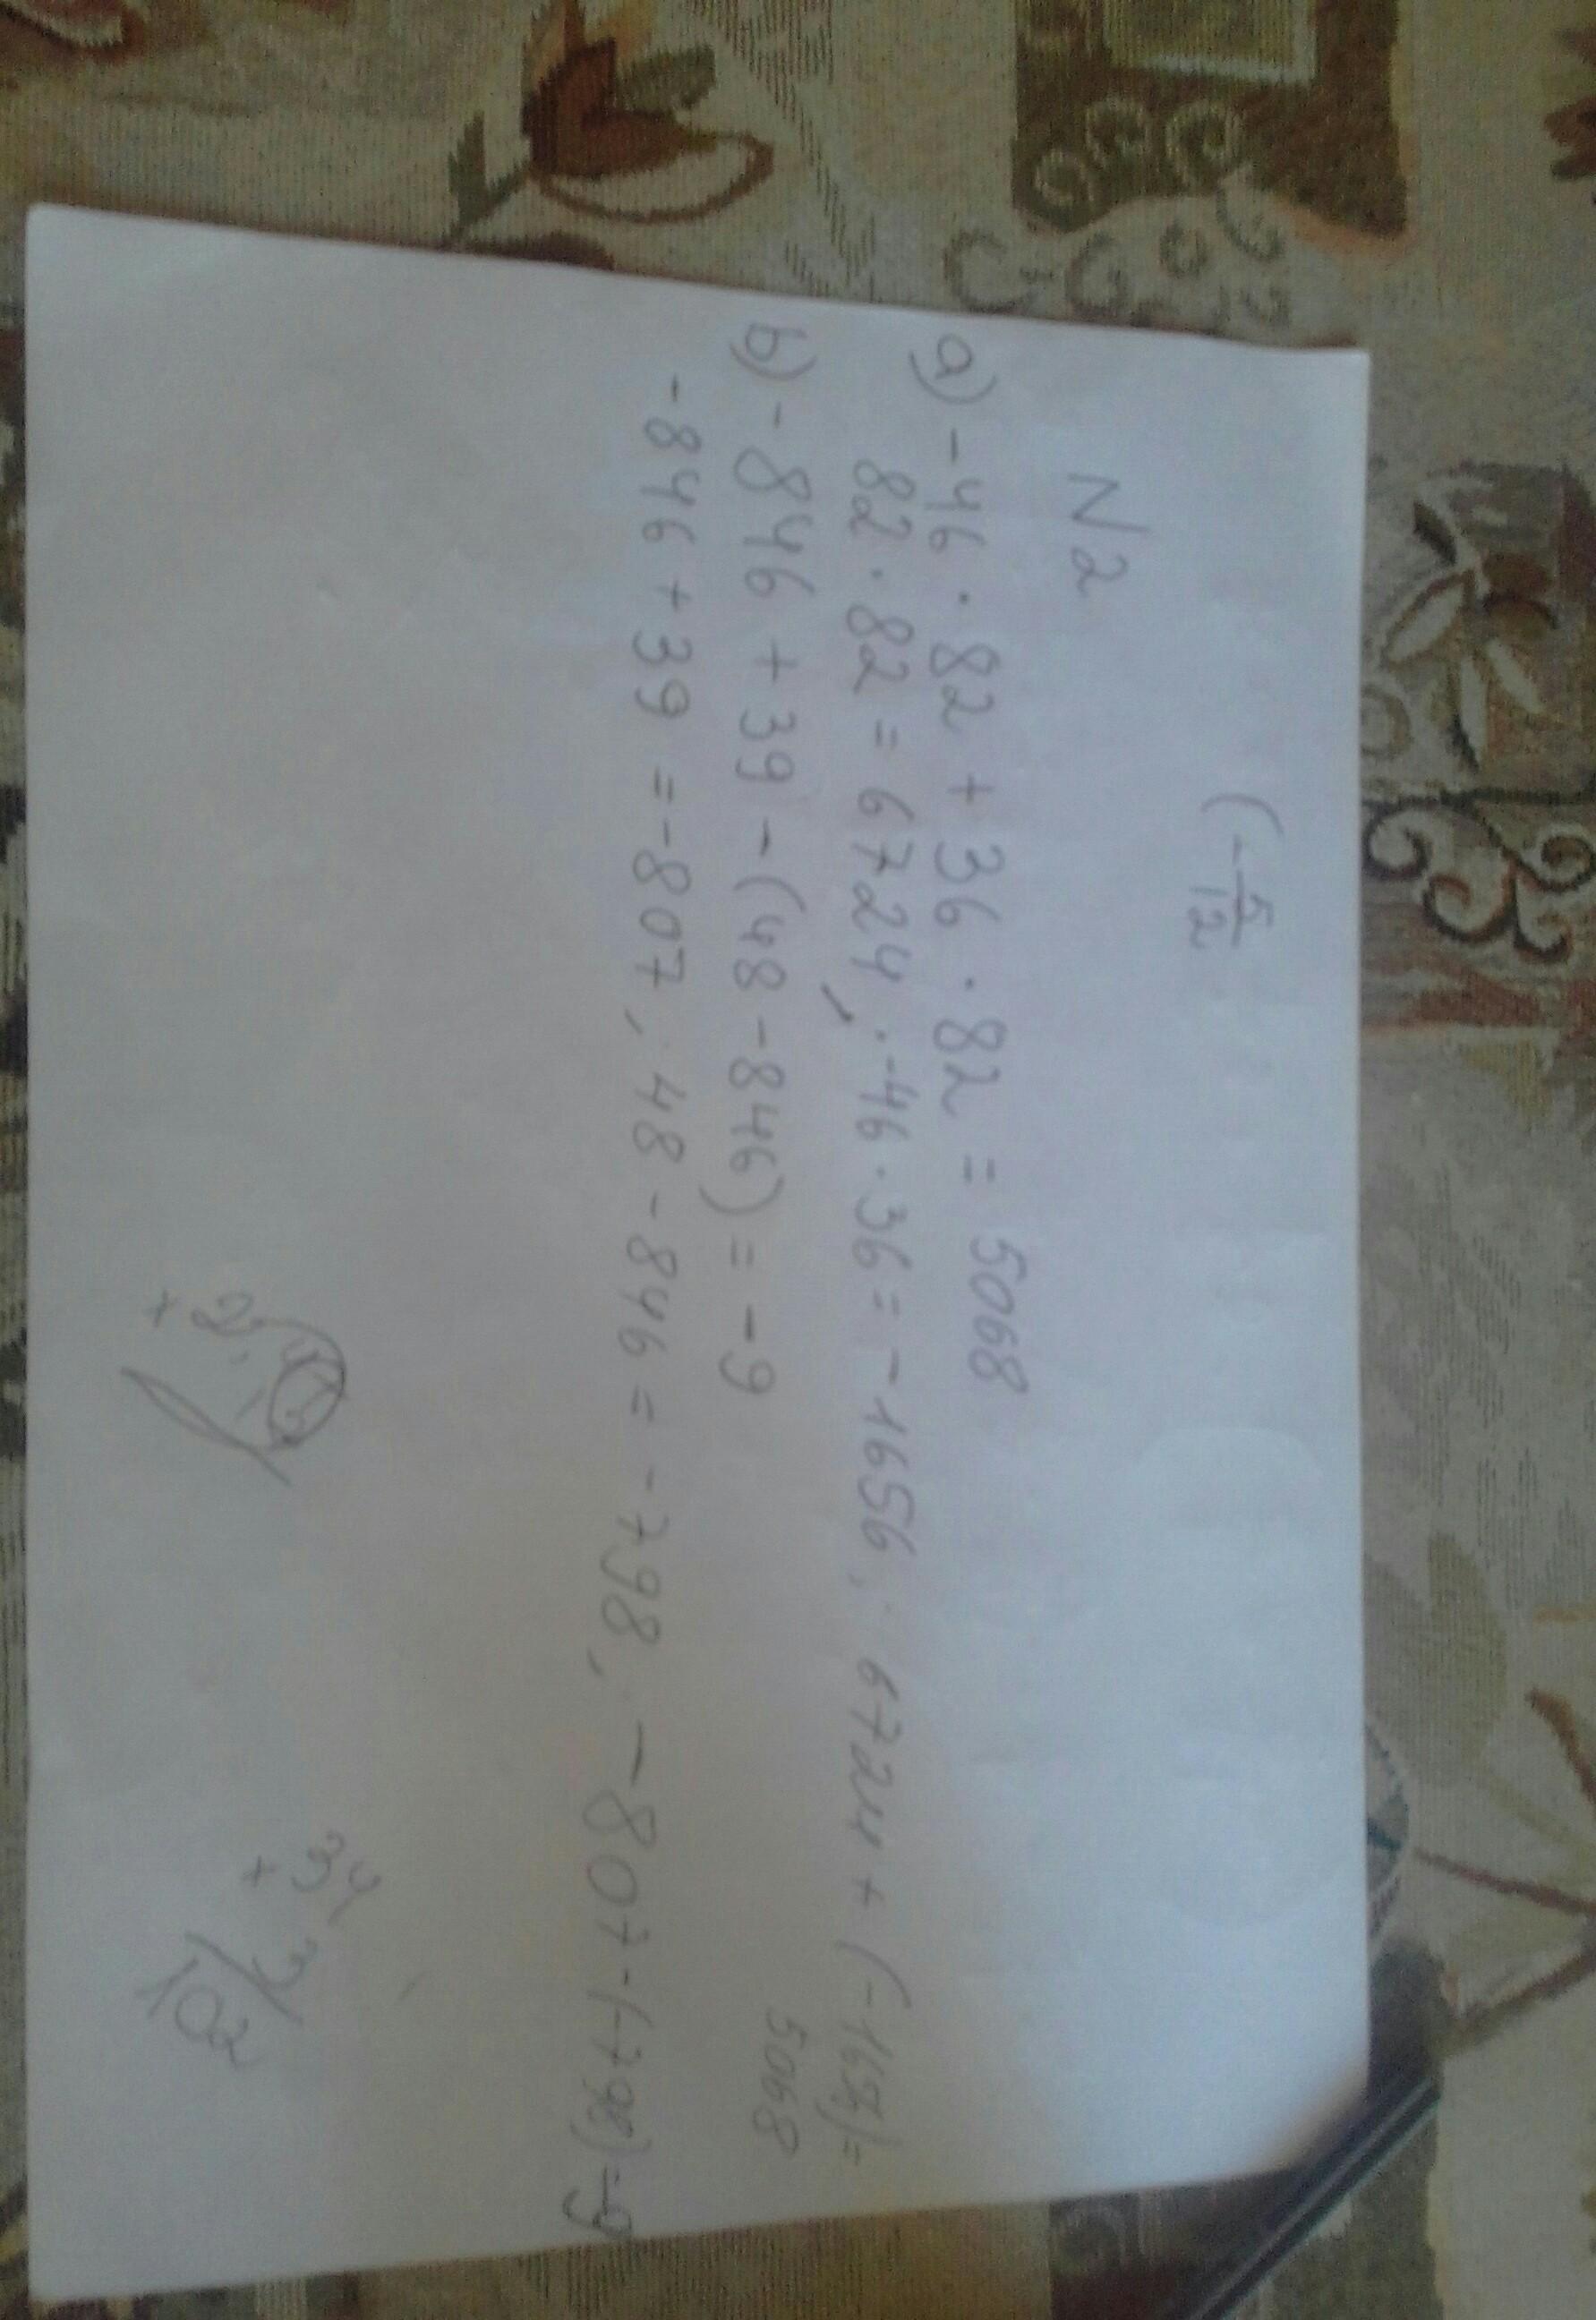 (-5/12
N2
a) -46 · 82 + 36 · 82 = 5068
82 · 82 = 6724, · -46 · 36 = -1656, 6724 + (-1656)=
5068
b) -846 + 39 - (48 - 846) = -9
-846 + 39 = -807, 48 - 846 = -798, -807-(-798)=-9
34
+
102
+